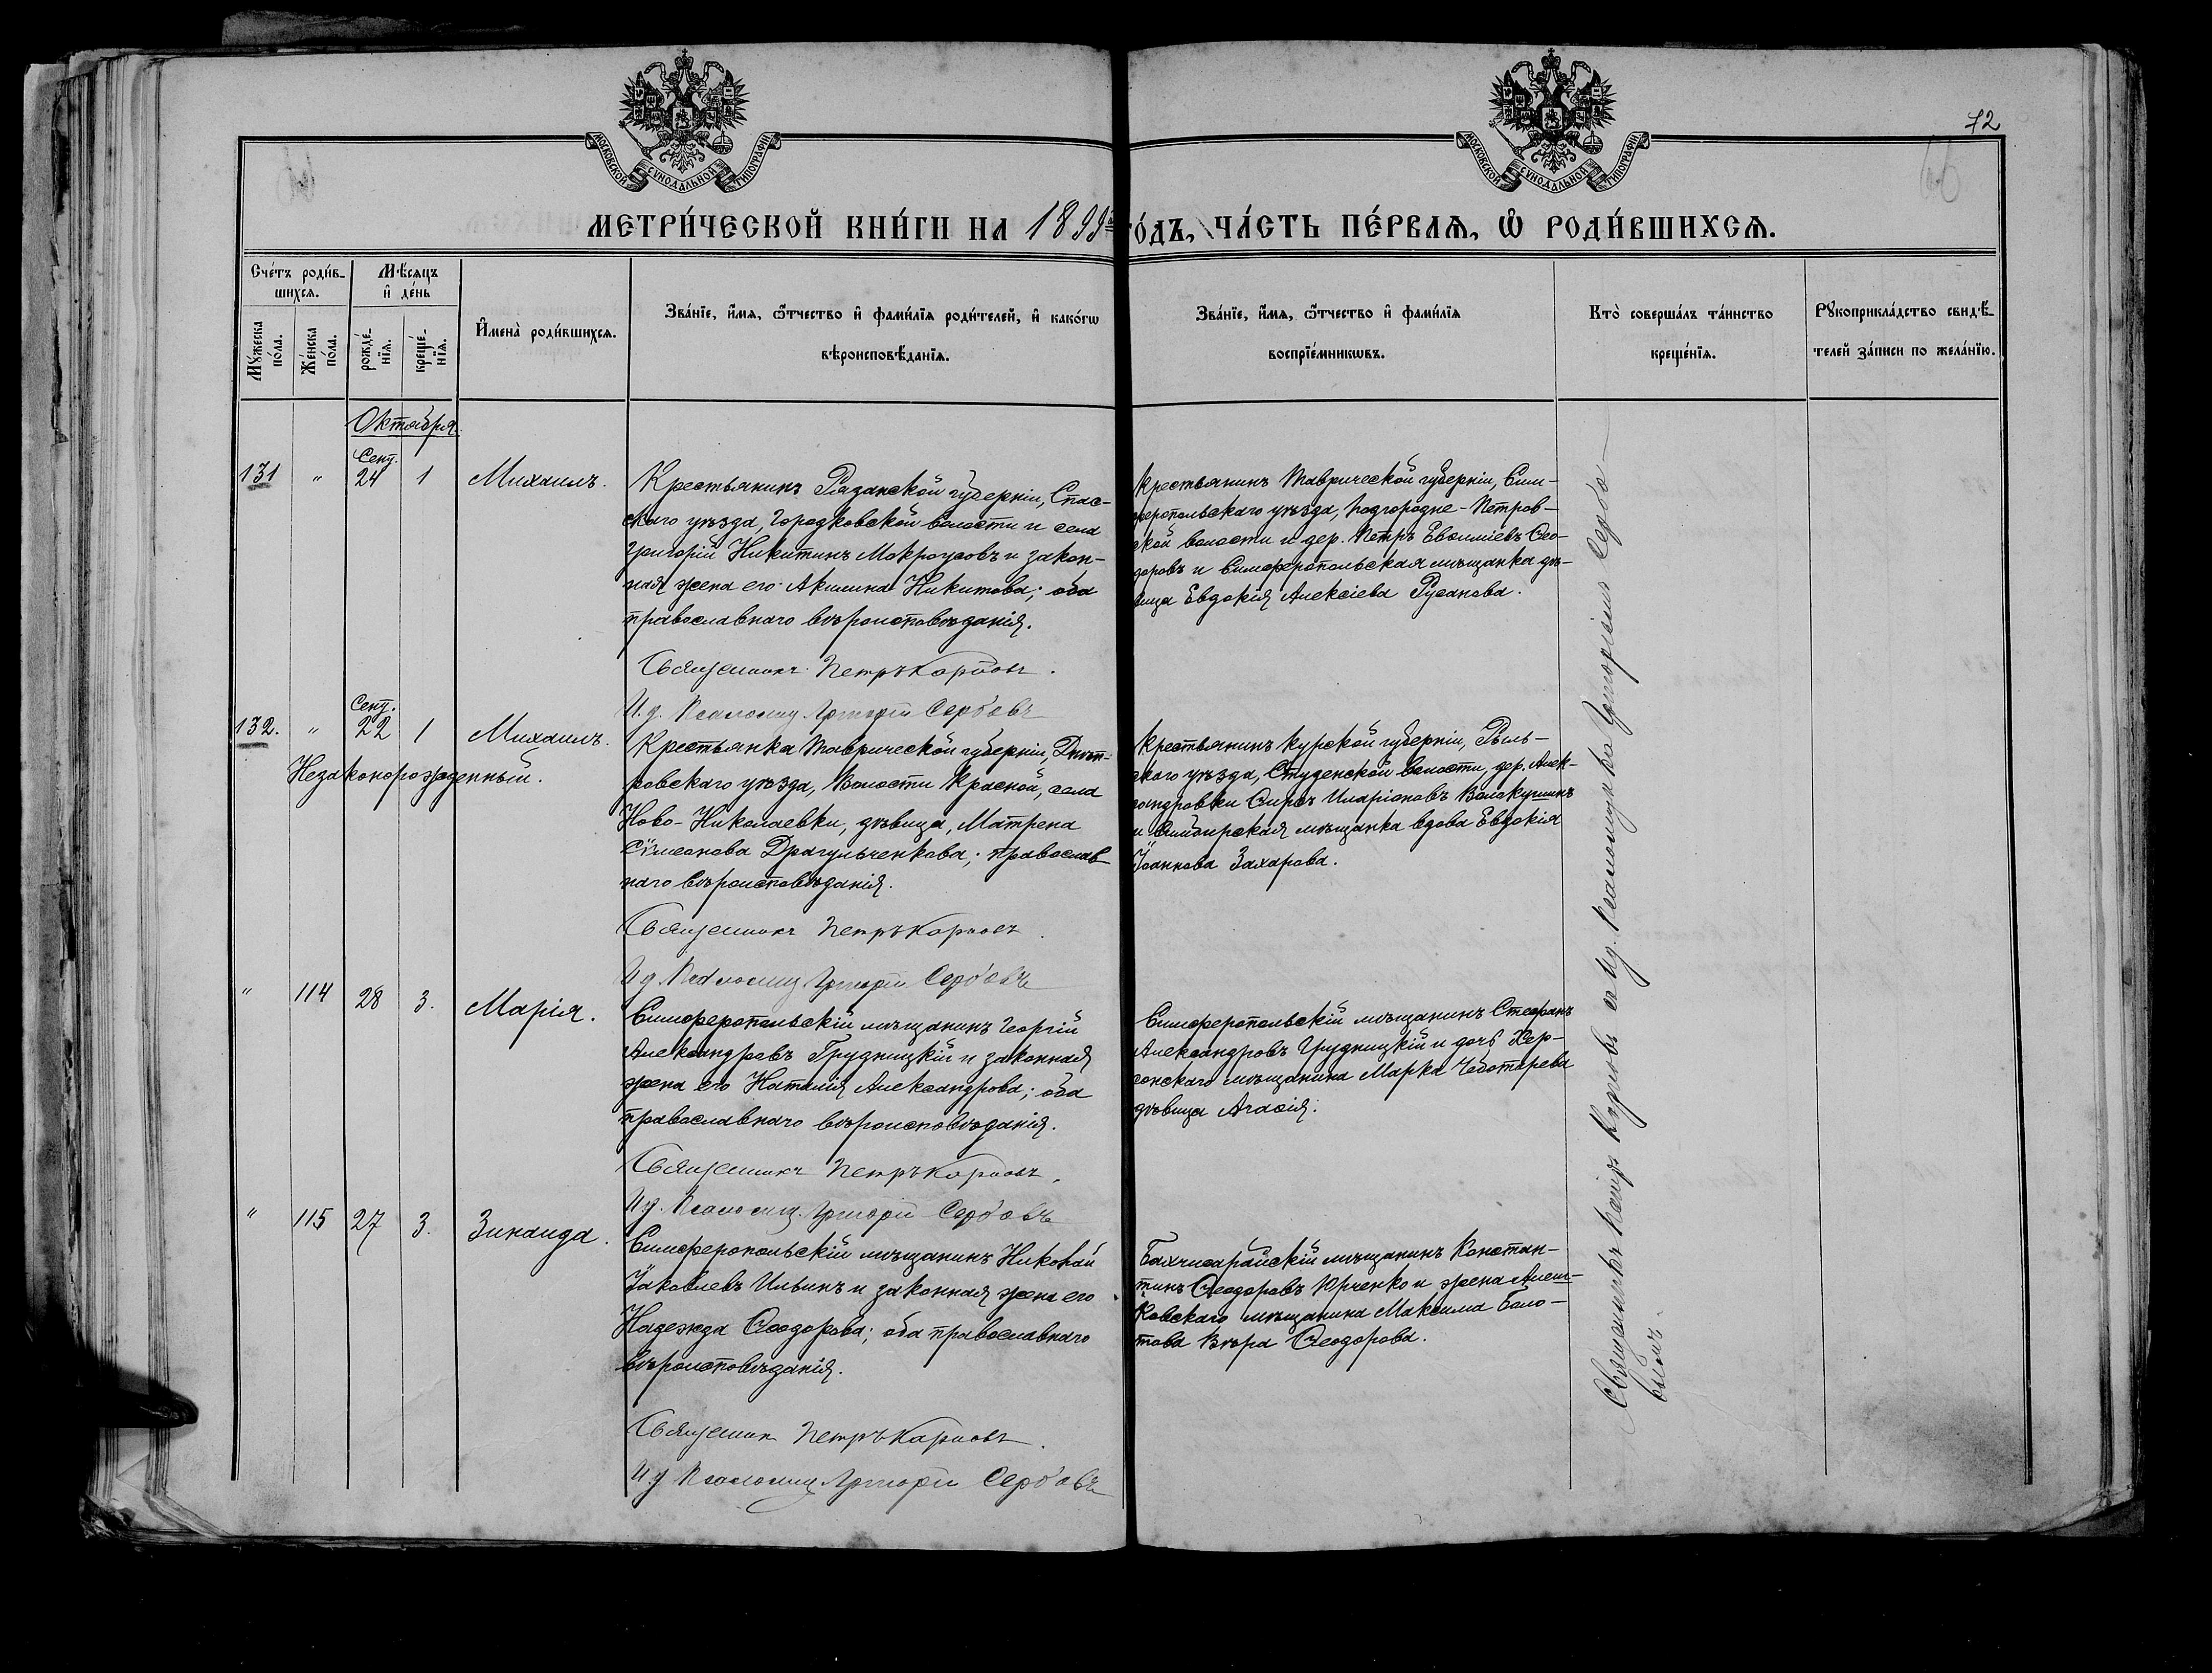 72
МОСКОВСКОЙ СѴНОДАЛЬНОЙ ТИПОГРАФІИ
МОСКОВСКОЙ СѴНОДАЛЬНОЙ ТИПОГРАФІИ
МЕТРИ́ЧЕСКОЙ КНИ́ГИ НА 1899й го́дъ, ЧА́СТЬ ПЕ́РВАѦ, Ѡ҆ РОДИ́ВШИХСѦ.
Сче́тъ роди́в-
шихсѧ.
Мꙋ́жеска
по́ла.
Же́нска
по́ла.
Мѣ́сяцъ
и҆ де́нь
рожде́-
нїѧ.
креще́-
нїѧ.
И҆мена̀ роди́вшихсѧ.
Зва́нїе, и҆́мѧ, ѻ҆́тчество и҆ фами́лїѧ роди́телей, и҆ како́гѡ
вѣроисповѣ́данїѧ.
Зва́нїе, и҆́мѧ, ѻ҆́тчество и҆ фами́лїѧ
воспрїе́мникѡвъ.
Кто̀ соверша́лъ та́инство
креще́нїѧ.
Рꙋкоприкла́дство свидѣ́-
телей за́писи по жела́нїю.
Октября.
131 " Сент. 24 1 Михаилъ.
Крестьянинъ Рязанской губерніи, Спас-
скаго уѣзда, Городковской волости и села
Григорій Никитинъ Мокроусовъ и закон-
ная жена его Акилина Никитова; оба
православнаго вѣроисповѣданія.
Священникъ Петръ Карповъ.
И.д. Псаломщ. Григорій Сербовъ
Крестьянинъ Таврической губерніи, Сим-
феропольскаго уѣзда, Подгородне-Петров-
ской волости и дер. Петръ Евѳиміевъ Ѳео-
доровъ и Симферопольская мѣщанка дѣ-
вица Евдокія Алексіева Русанова.
132. " Сент. 22 1 Михаилъ.
Незаконорожденный.
Крестьянка Таврической губерніи, Днѣп-
ровскаго уѣзда, Волости Красной, села
Ново-Николаевки, дѣвица, Матрена
Сѵмеонова Драгульченкова; православ-
наго вѣроисповѣданія.
Священникъ Петръ Карповъ.
И д. Псаломщ Григорій Сербовъ
Крестьянинъ Курской губерніи, Рыль-
скаго уѣзда, Студенской волости, дер. Алек-
сандровки Сиръ Иларіоновъ Волокушинъ
и Симбирская мѣщанка вдова Евдокія
Іоаннова Захарова.
" 114 28 3. Марія.
Симферопольскій мѣщанинъ Георгій
Александровъ Грудницкій и законная
жена его Наталія Александрова; оба
православнаго вѣроисповѣданія.
Священникъ Петръ Карповъ.
И д. Псаломщ. Григорій Сербовъ
Симферопольскій мѣщанинъ Стефанъ
Александровъ Грудницкій и дочь Хер-
сонскаго мѣщанина Марка Чеботарева
дѣвица Агаѳія.
" 115 27 3. Зинаида.
Симферопольскій мѣщанинъ Николай
Іаковлевъ Ильинъ и законная жена его
Надежда Ѳеодорова; оба православнаго
вѣроисповѣданія.
Священник Петръ Карповъ.
И д Псаломщ Григорій Сербовъ
Бахчисарайскій мѣщанинъ Констан-
тинъ Ѳеодоровъ Юрченко и жена Алеш-
ковскаго мѣщанина Максима Боло-
това Вѣра Ѳеодорова.
Священникъ Петръ Карповъ съ и.д. псаломщика Григоріемъ Сербо-
вымъ.